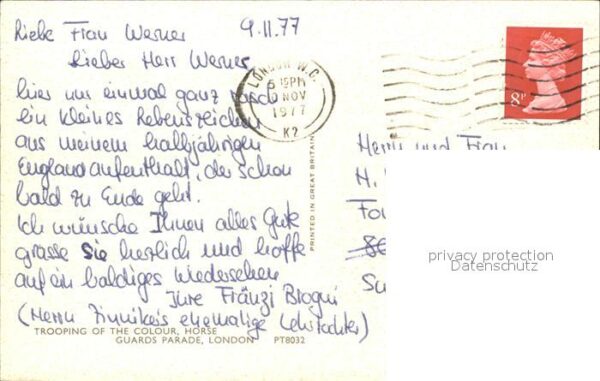 Liebe Frau Werner 9.11.77
Lieber Herr Werner
hier nur einmal ganz rasch
ein kleines Lebenszeichen
aus meinem halbjährigen
Englandaufenthalt, der schon
bald zu Ende geht.
Ich wünsche Ihnen alles Gute
grüsse Sie herzlich und hoffe
auf ein baldiges Wiedersehen
Ihre Fränzi Brogni
(Herrn ehemalige Lehrtochter)
TROOPING OF THE COLOUR, HORSE
GUARDS PARADE, LONDON PT8032
PRINTED IN GREAT BRITAIN
LONDON W.C.
5 15PM
NOV
1977
K2
8P
Herrn und Frau
privacy protection
Datenschutz